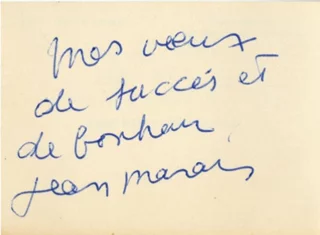 mes vœux
de succés et
de bonheur
Jean Marais